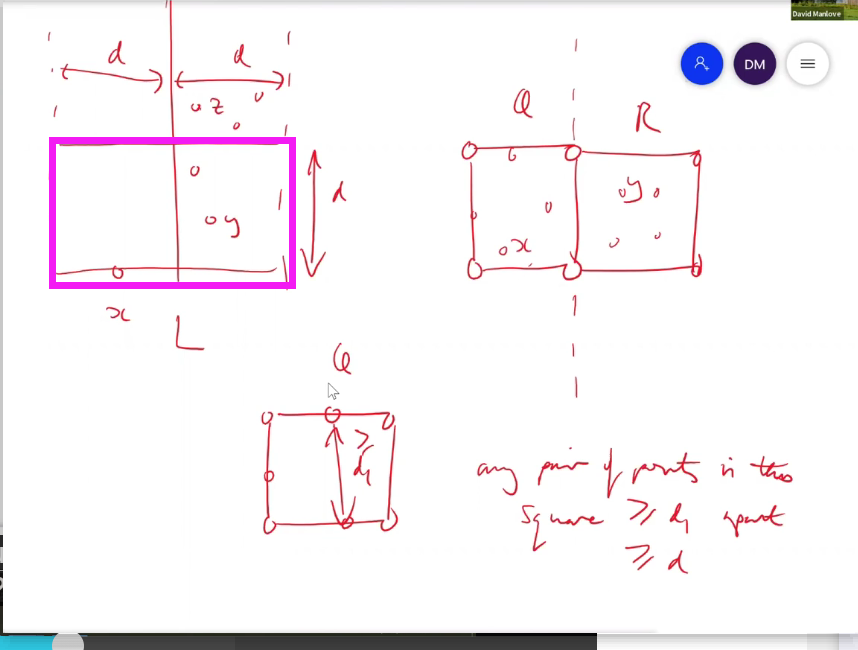 David Manlove
DM
d
d
z
y
d
x
L
Q
R
x
y
Q
≥
d₁
any pair of points in this
square ≥ d₁ apart
≥ d